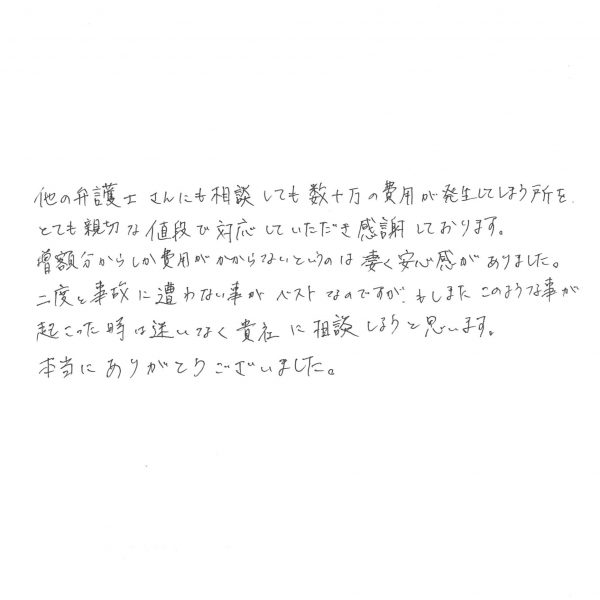 他の弁護士さんにも相談しても数十万の費用が発生してしまう所を、
とても親切な値段で対応していただき感謝しております。
増額分からしか費用がかからないというのは凄く安心感がありました。
二度と事故に遭わない事がベストなのですが、もしまたこのような事が
起こった時は迷いなく貴社に相談しようと思います。
本当にありがとうございました。